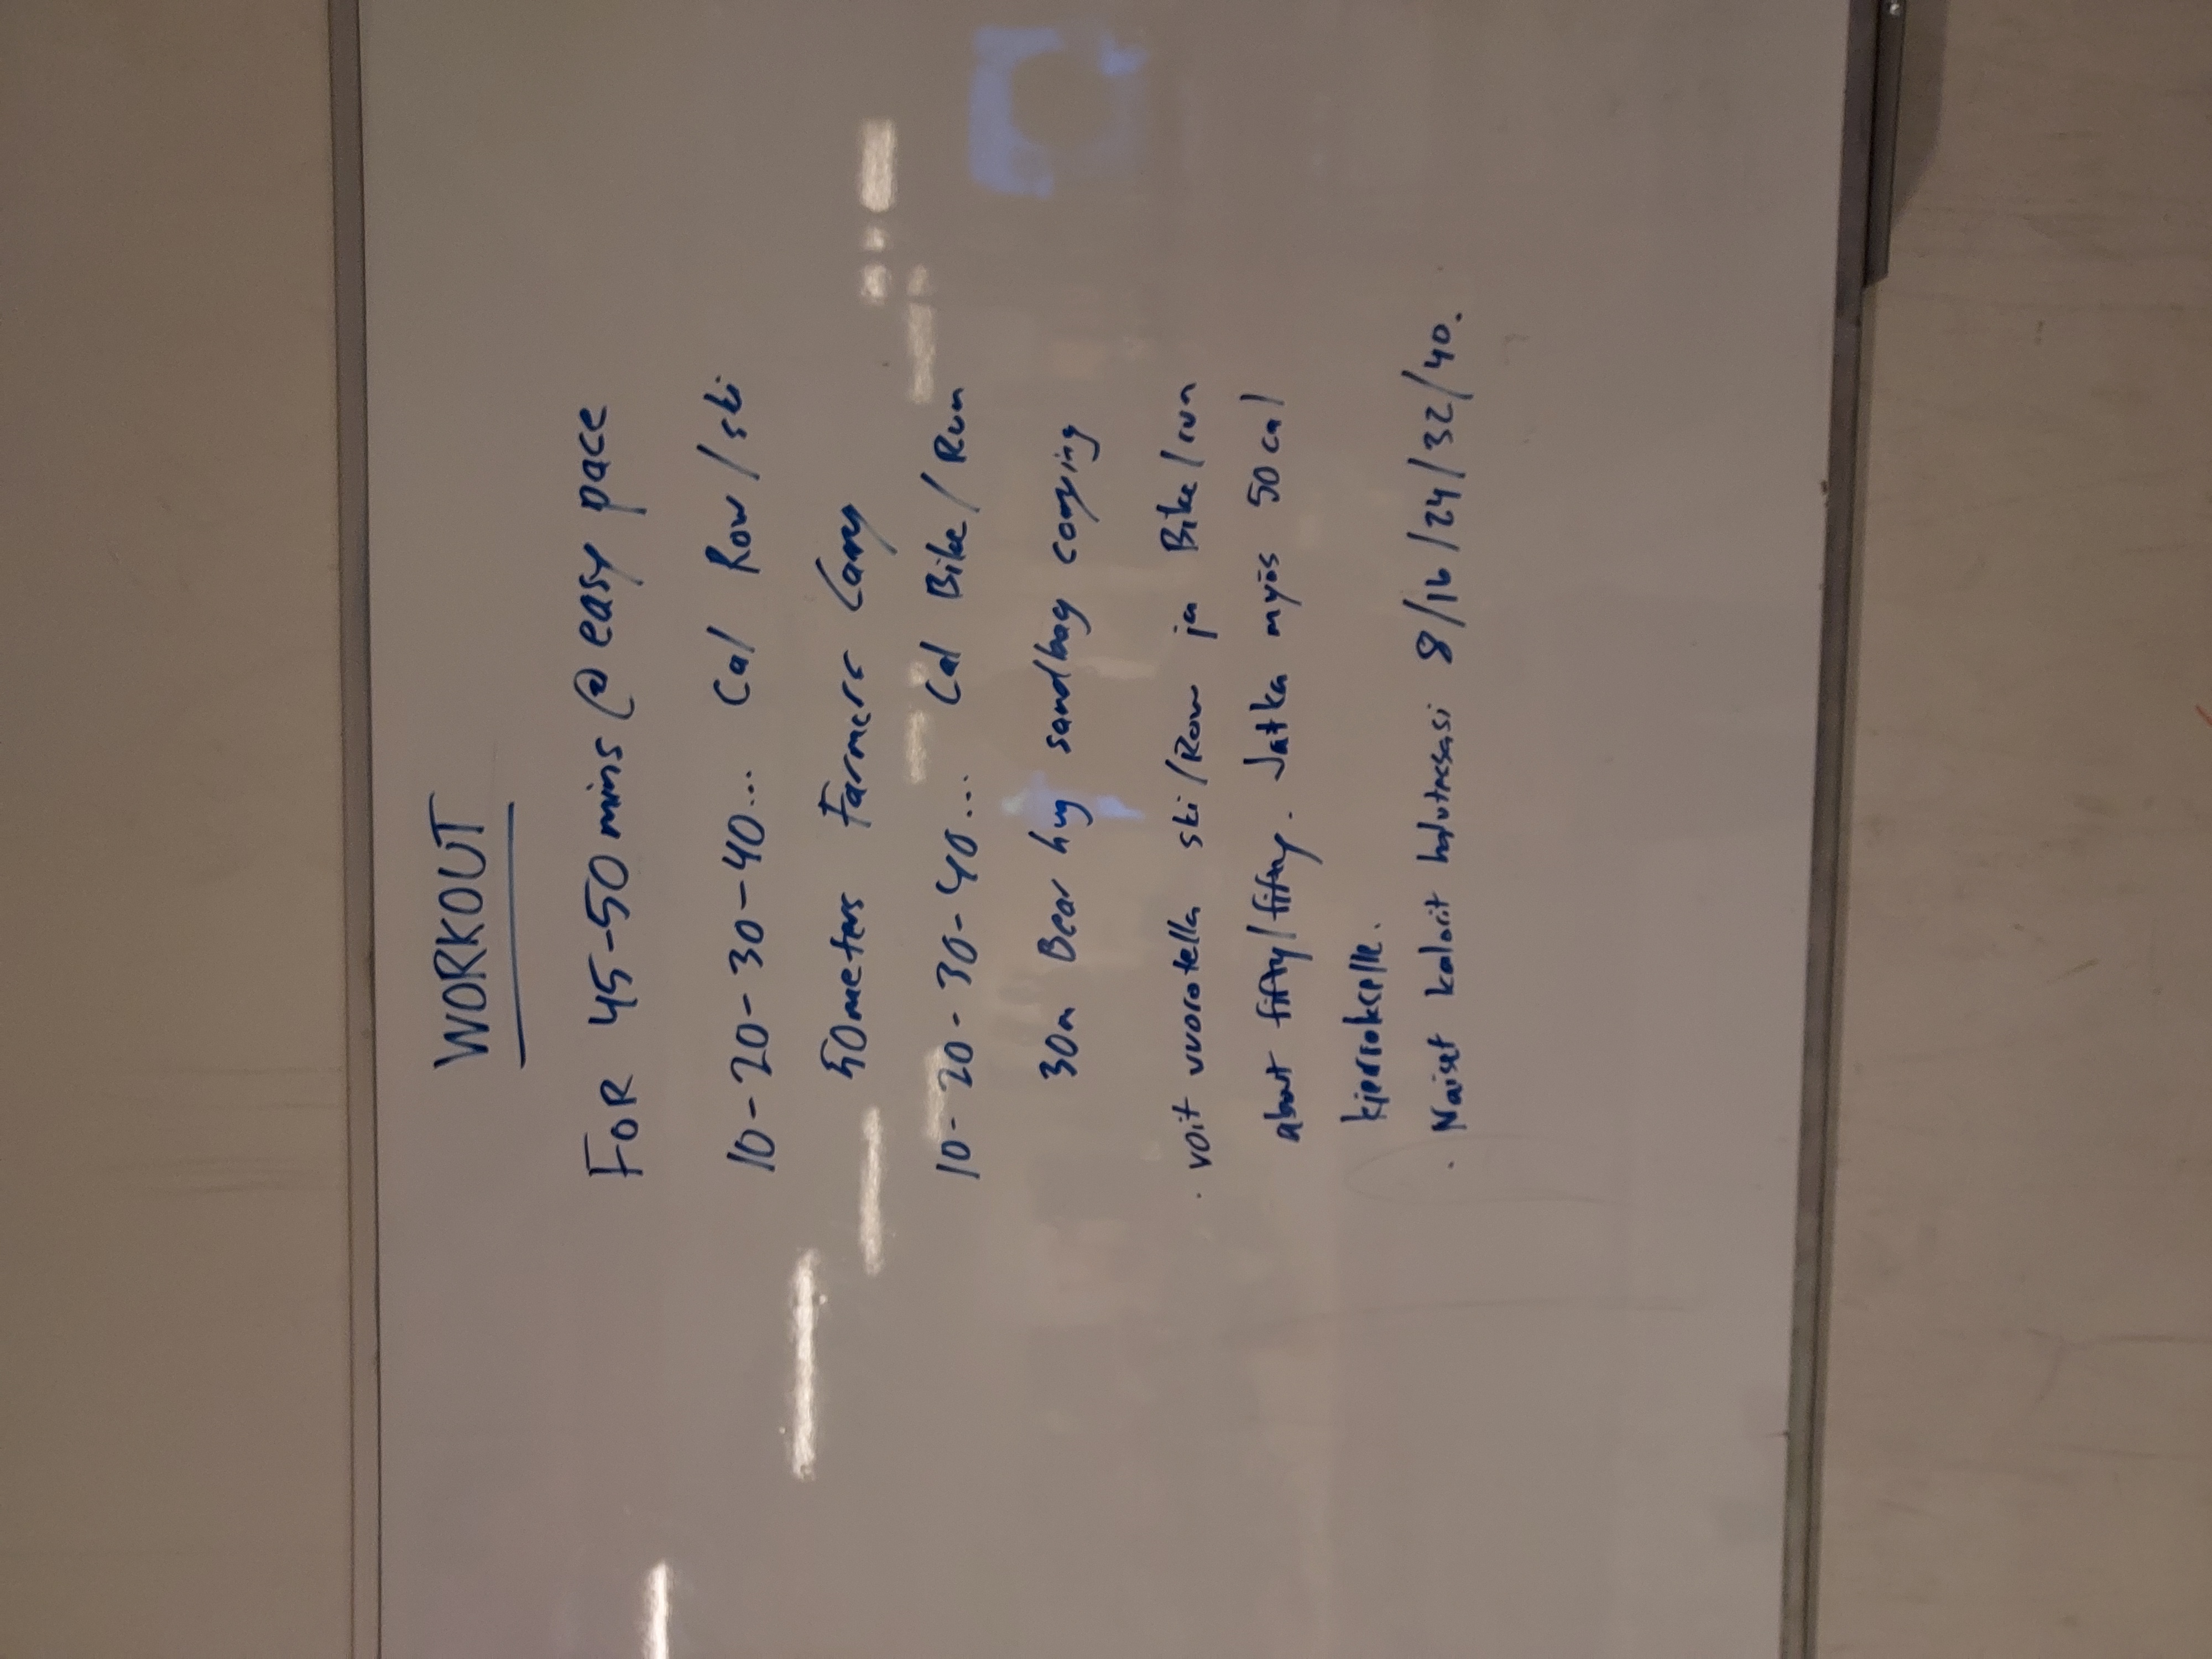 WORKOUT
FOR 45-50 mins @ easy pace
10-20-30-40... Cal Row/ski
50meters Farmers Carry
10-20-30-40... Cal Bike/Run
30m Bear hug sandbag carrying
· voit vuorotella ski/Row ja Bike/run
about fifty/fifty. Jatka myös 50 cal
kierrokselle.
· Naiset kalorit halutessasi 8/16/24/32/40.